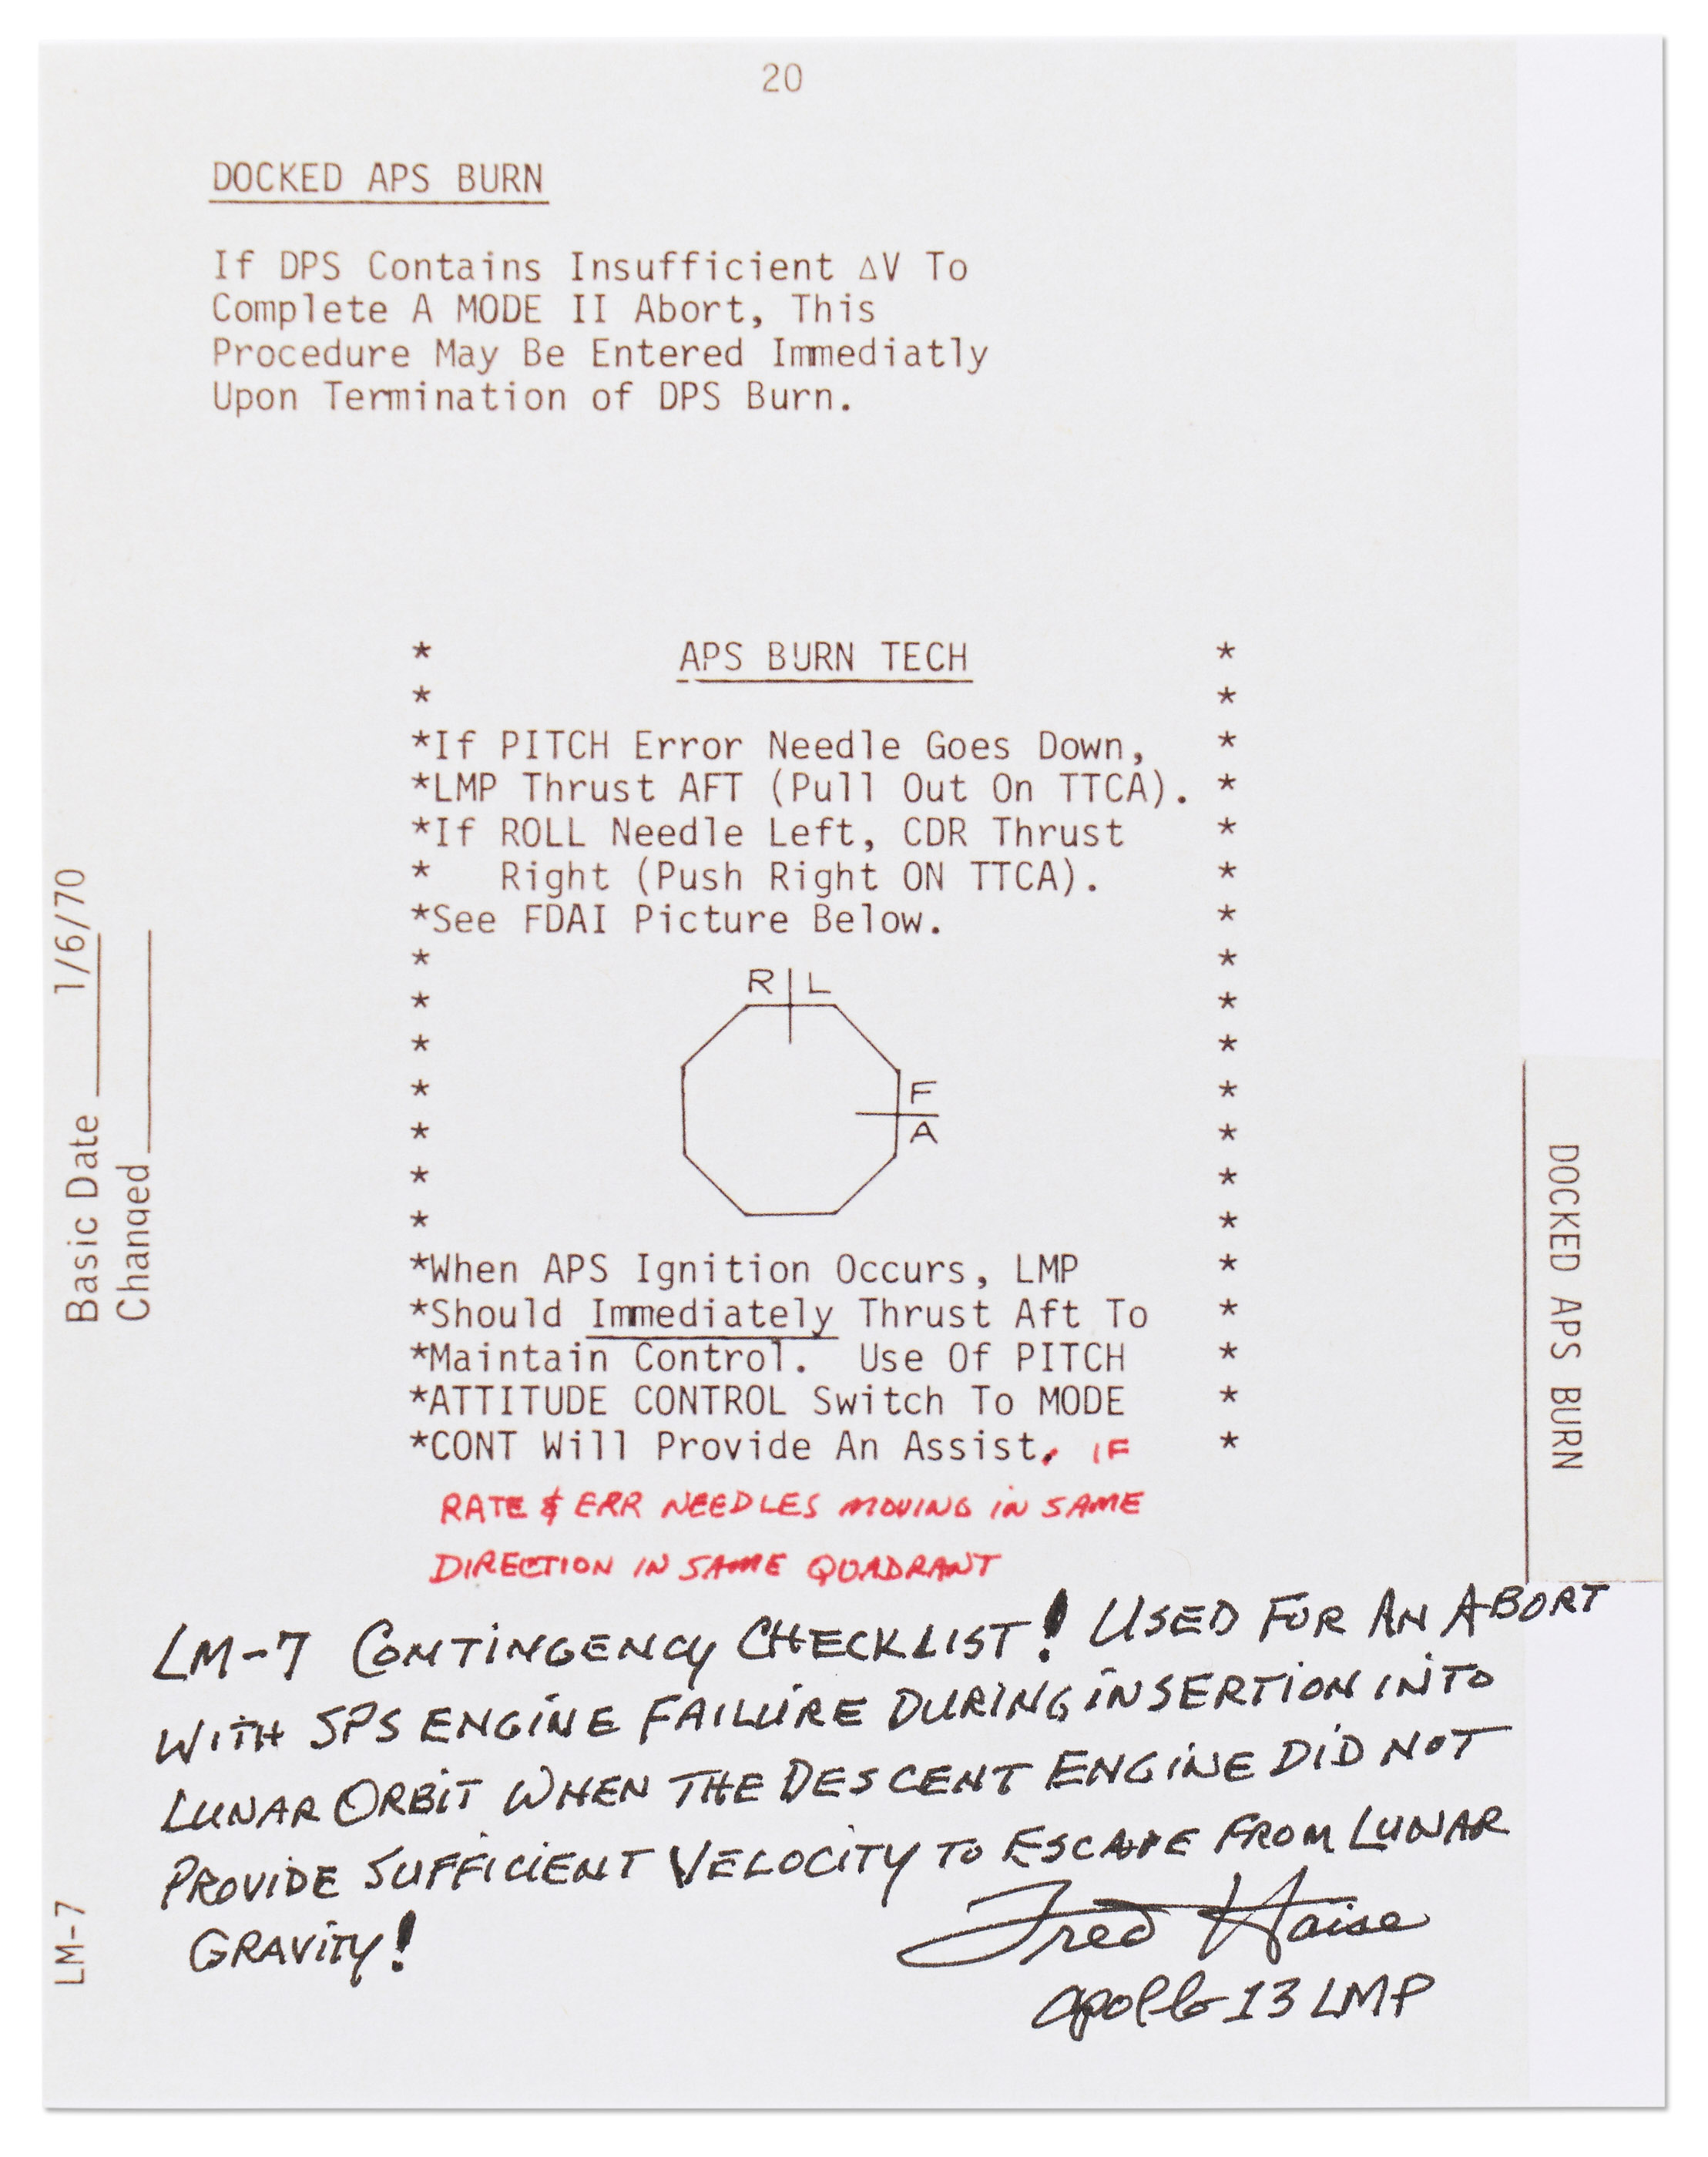 20
DOCKED APS BURN
If DPS Contains Insufficient ΔV To
Complete A MODE II Abort, This
Procedure May Be Entered Immediatly
Upon Termination of DPS Burn.
* APS BURN TECH *
* *
*If PITCH Error Needle Goes Down, *
*LMP Thrust AFT (Pull Out On TTCA). *
*If ROLL Needle Left, CDR Thrust *
* Right (Push Right ON TTCA). *
*See FDAI Picture Below. *
* *
* R L *
* *
* F *
* A *
* *
* *
*When APS Ignition Occurs, LMP *
*Should Immediately Thrust Aft To *
*Maintain Control. Use Of PITCH *
*ATTITUDE CONTROL Switch To MODE *
*CONT Will Provide An Assist, IF *
RATE & ERR NEEDLES MOVING IN SAME
DIRECTION IN SAME QUADRANT
LM-7 CONTINGENCY CHECKLIST! USED FOR AN ABORT
WITH SPS ENGINE FAILURE DURING INSERTION INTO
LUNAR ORBIT WHEN THE DESCENT ENGINE DID NOT
PROVIDE SUFFICIENT VELOCITY TO ESCAPE FROM LUNAR
GRAVITY!
Fred Haise
Apollo 13 LMP
Basic Date 1/6/70
Changed
LM-7
DOCKED APS BURN